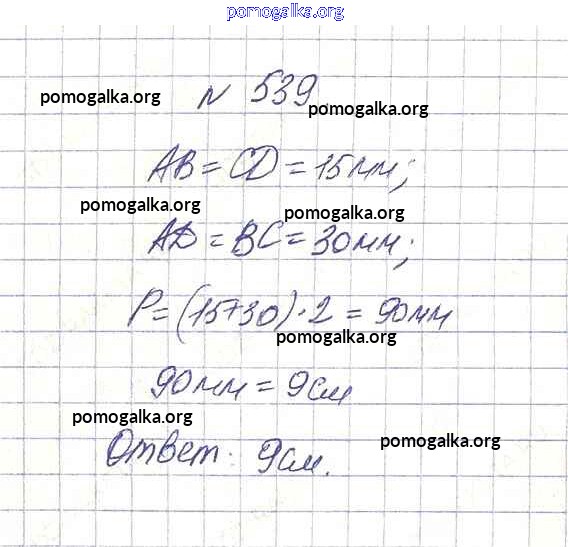 pomogalka.org
№ 539
pomogalka.org pomogalka.org
AB = CD = 15мм;
pomogalka.org pomogalka.org
AD = BC = 30мм;
P = (15+30)·2 = 90мм
pomogalka.org
90мм = 9см
pomogalka.org pomogalka.org
Ответ: 9см.